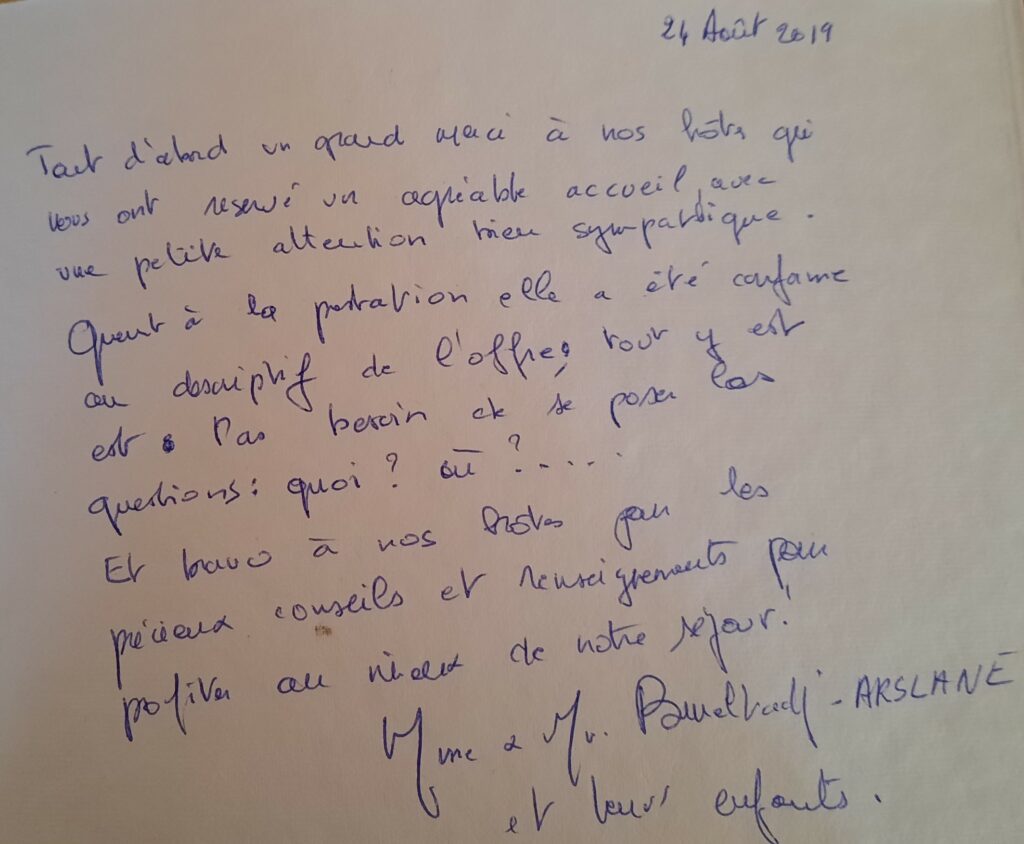 24 Août 2019
Tout d'abord un grand merci à nos hôtes qui
nous ont reservé un agréable accueil, avec
une petite attention bien sympathique.
Quant à la prestation elle a été conforme
au descriptif de l'offre; tout y est
est. Pas besoin de se poser les
questions: quoi? où?.....
Et bravo à nos hôtes pour les
précieux conseils et renseignements pour
profiter au mieux de notre séjour!
Mme & Mr. Benelhadj-ARSLANE
et leurs enfants.